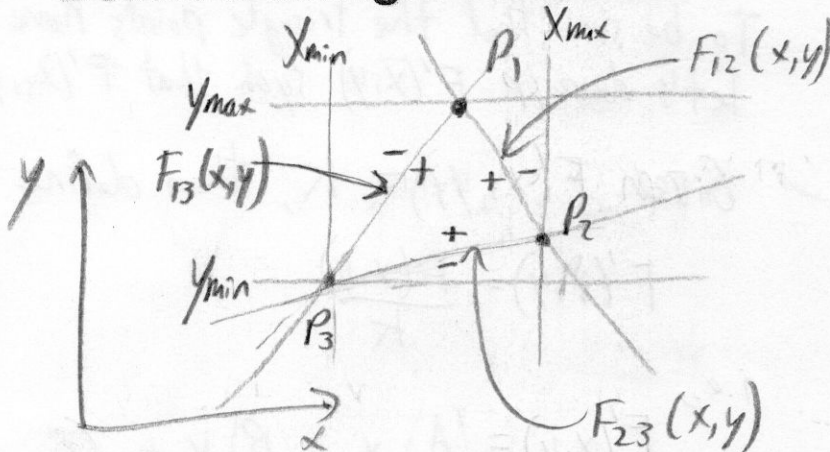 Xmin
Xmax
P1
F12(x,y)
ymax
F13(x,y)
- +
+ -
y
P2
+
-
ymin
P3
x
F23(x,y)